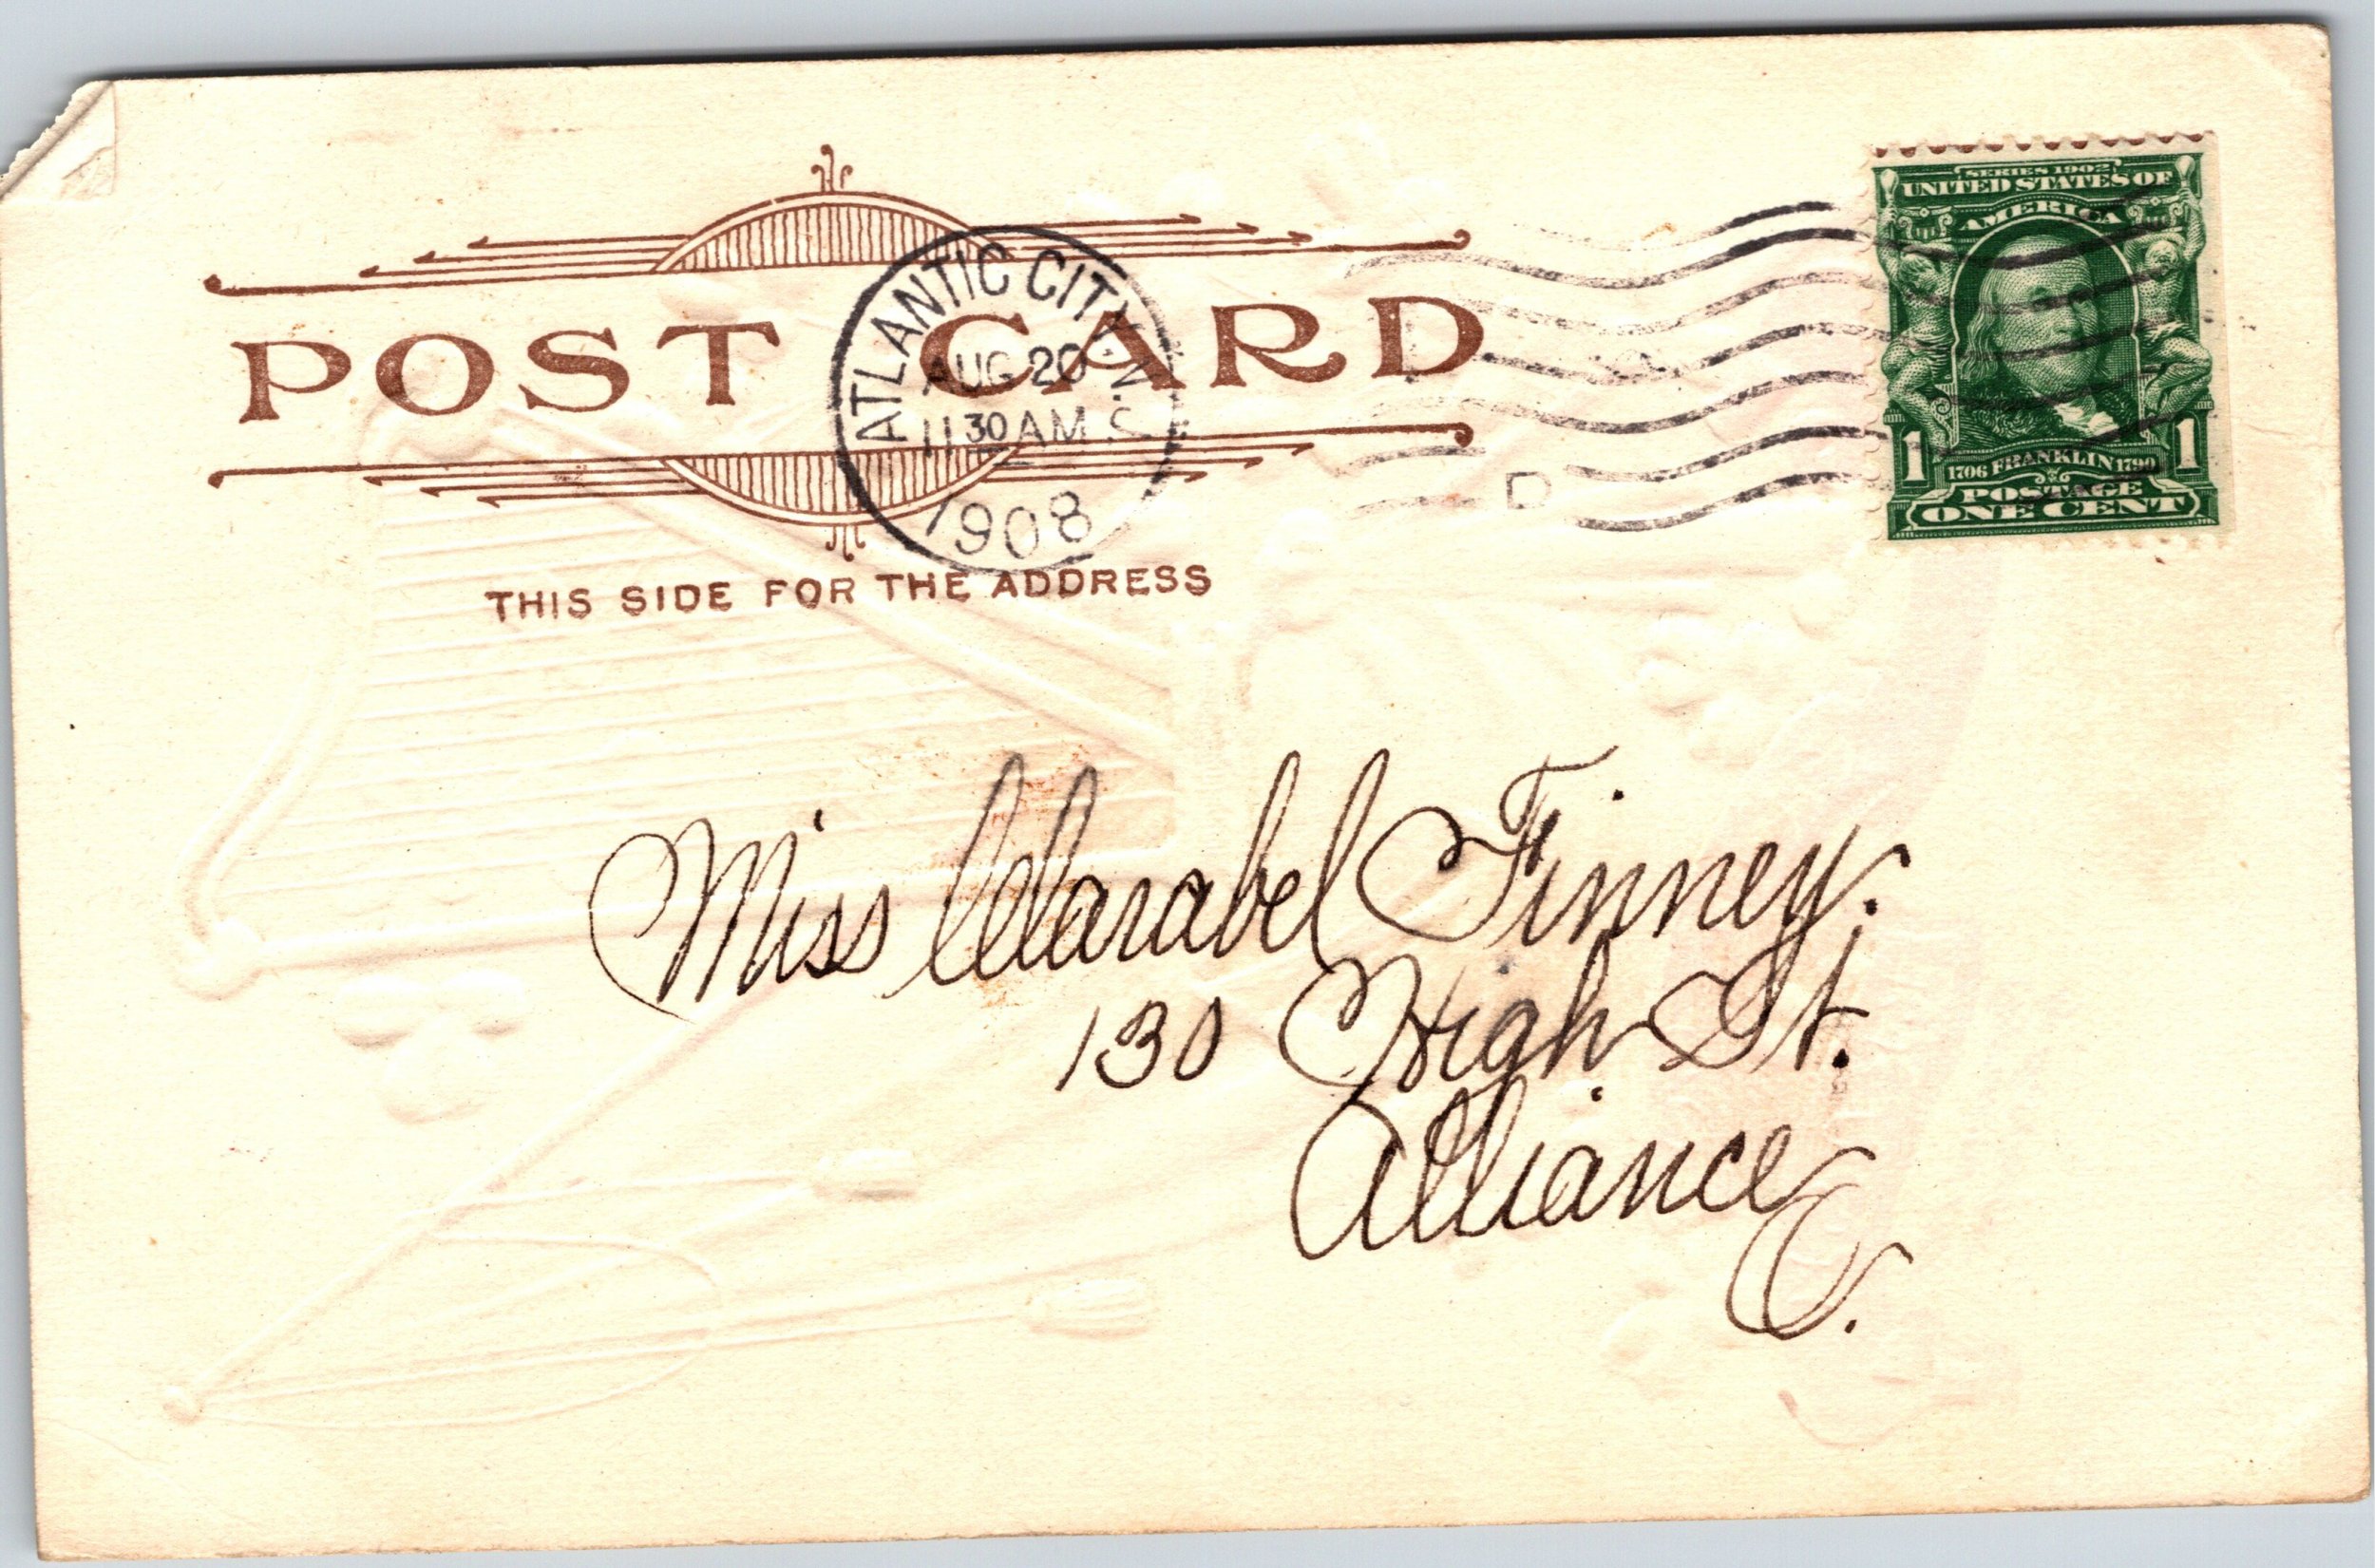 SERIES 1902
UNITED STATES OF
AMERICA
1 1706 FRANKLIN 1790 1
POSTAGE
ONE CENT
POST CARD
ATLANTIC CITY, N.J.
AUG 20
11 30 AM
1908
D
THIS SIDE FOR THE ADDRESS
Miss Clarabel Finney.
130 High St.
Alliance
O.